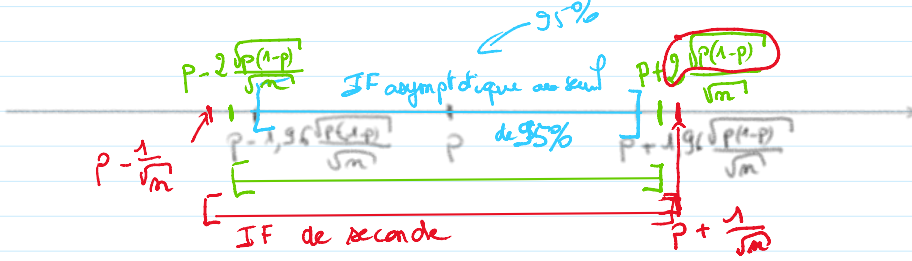 95%
p - 2 √p(1-p) / √n
IF asymptotique au seuil
de 95%
p + 2 √p(1-p) / √n
p - 1,96 √p(1-p) / √n
p
p + 1,96 √p(1-p) / √n
p - 1/√n
IF de seconde
p + 1/√n